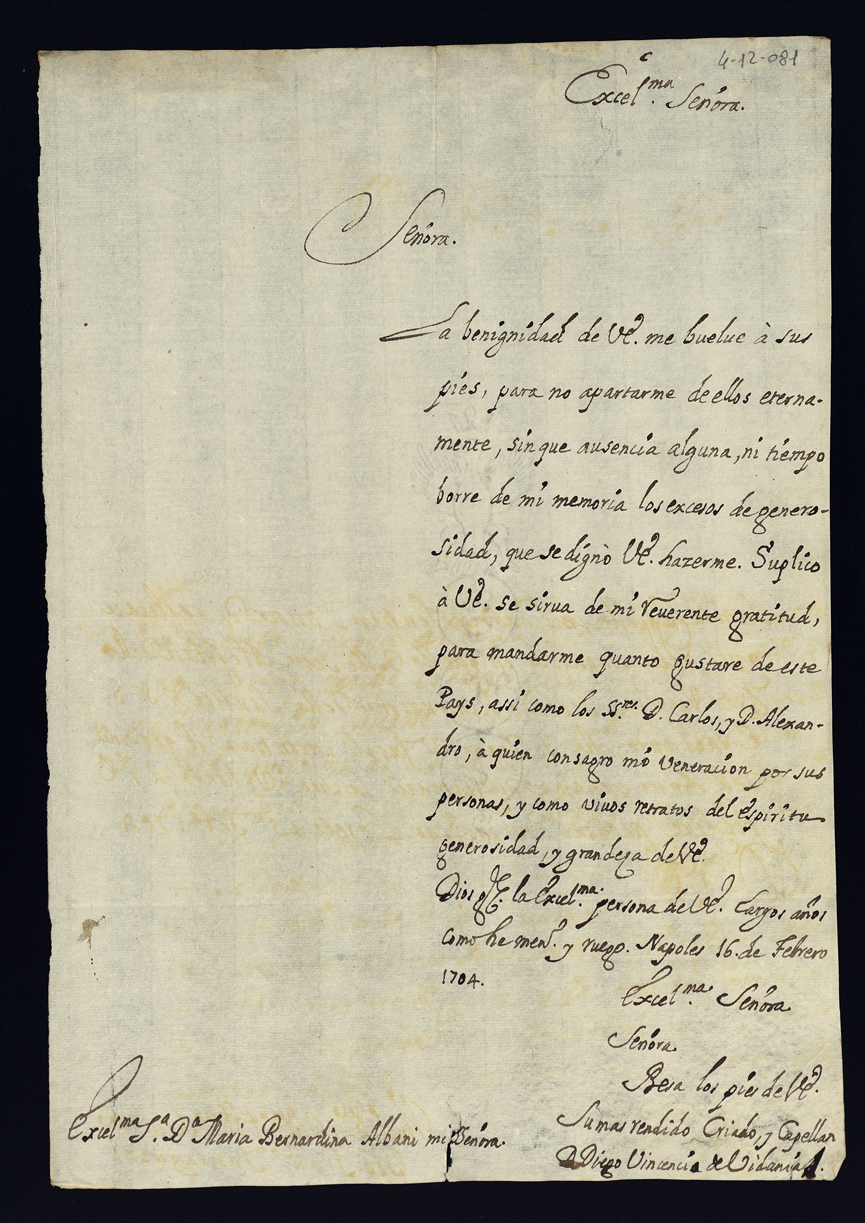 4-12-081
Excel.ma Señora.
Señora.
La benignidad de VE. me buelue à sus
pies, para no apartarme de ellos eterna-
mente, sin que ausencia alguna, ni tiempo
borre de mi memoria los excesos de genero-
sidad, que se dignò VE. hazerme. Suplico
à VE. se sirua de mi reuerente gratitud,
para mandarme quanto gustare de este
Pays, assi como los SS.res D. Carlos, y D. Alexan-
dro, à quien consagro mi veneracion por sus
personas, y como viuos retratos del espiritu
generosidad, y grandeza de VE.
Dios g.e la Excel.ma persona de VE. largos años
como he men.r y ruego. Napoles 16. de Febrero
1704.
Excel.ma Señora
Señora
Besa los pies de VE.
Su mas rendido Criado, y Capellan
D. Diego Vincencio de Vidania
Excel.ma S.a D.a Maria Bernardina Albani mi Señora.